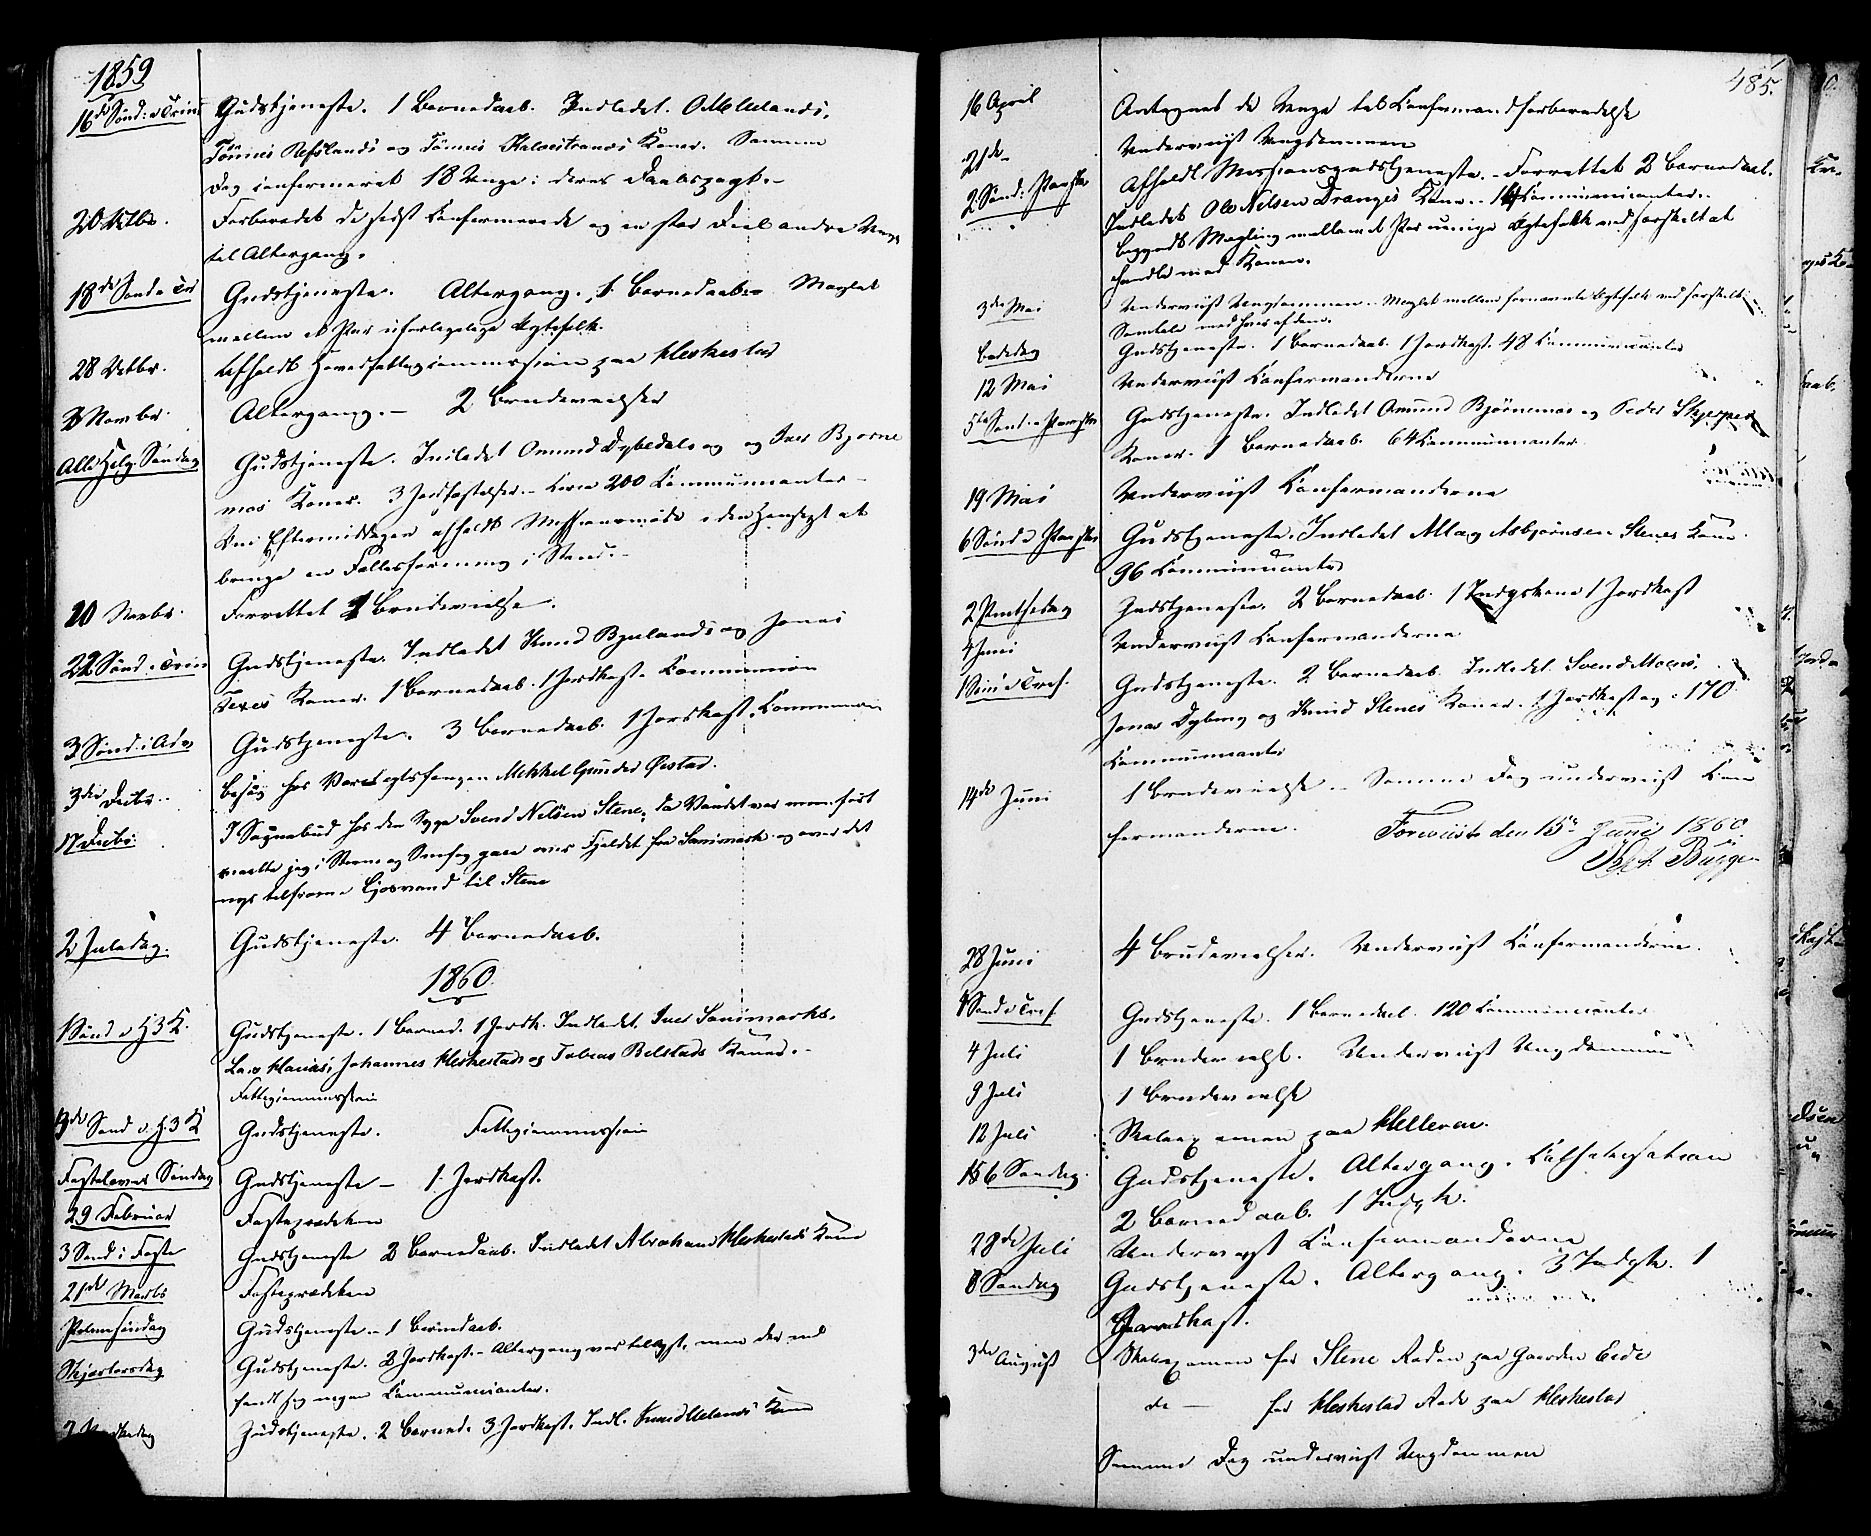 1859
16de Sønd: e Trin: Gudstjeneste. 1 Barnedaab. Indledet. O M Uelands,
Tønnes Refslands og Tønnes Kalvestrands Koner. Samme
Dag confirmeret 18 Unge i deres Daabspagt.-
20 Octbr. Forberedet de sidst Confirmerede og en stor Deel andre Unge
til Altergang.
18de Sønd e Tri Gudstjeneste. Altergang. 1 Barnedaab. Maglet
mellem et Par uforligelige Ægtefolk.
28 Octbr. Afholdt Hovedfattigcommission paa Heskestad
3 Novbr. Altergang.- 2 Brudevielser
Alle Helg. Søndag Gudstjeneste. Indledet Omund Dybedals og Iver Bjørne
mos Koner. 3 Jordfæstelser.- Circa 200 Communicanter-
Om Eftermiddagen afholdt Missionsmøde i den Hensigt at
bringe en Fællesforening i Stand.-
10 Novbr. Forrettet 1 Brudevielse.
22 Sønd. e Trin Gudstjeneste. Indledet Knud Bjulands og Jonas
Koner. 1 Barnedaab. 1 Jordkast. Communion
3 Sønd. i Adv Gudstjeneste. 3 Barnedaab. 1 Jordkast. Communion
3die Decbr.. Besøg hos Varetægtsfangen Mikkel Gunder Ørstad.
17 Decbr. I Sognebud hos den Syge Svend Nilsen Stene, da Vandet var
maatte jeg i Storm og Sneefog gaae over Fjeldet fra Sanimark og over det
nys tilfrosne Ljosvand til Stene
2 Juledag. Gudstjeneste. 4 Barnedaab.
1860.
1 Sønd e H3K. Gudstjeneste. 1 Barned. 1 Jordk. Indledet. Iver Sanimarks,
Johannes Heskestads og Tobias Bilstads Koner.-
Fattigcommission
3de Sønd e. H3K Gudstjeneste. Fattigcommission
Fastelavns Søndag Gudstjeneste- 1 Jordkast.
29 Februar Fasteprædiken
3 Sønd i Faste Gudstjeneste 2 Barnedaab. Indledet Abraham Heskestads Kone
21de Marts Fasteprædiken
Palmesøndag Gudstjeneste.- 1 Barnedaab.
Skjærtorsdag Gudstjeneste. 2 Jordkast.- Altergang var tillyst, men der ind
fandt sig ingen Communicanter.
2 Paaskedag Gudstjeneste. 2 Barned. 3 Jordkast. Indl. Uelands Kone
485.
16 April Antegnet de Unge til Confirmandforberedelse
21de- Underviist Ungdommen
2. Sønd. e Paaske Afholdt Missionsgudstjeneste.- Forrettet 2 Barnedaab.
Indledet Ole Nilsen Dranges Kone.- 14 Communicanter.-
begyndt Megling mellem et Par uenige Ægtefolk ved særskilt at
handle med Konen.
3die Mai Underviist Ungdommen.- Meglet mellem fornævnte Ægtefolk ved særskilt
Samtale med hver af dem.
Bededag Gudstjeneste. 1 Barnedaab. 1 Jordkast. 48 Communicanter
12 Mai Underviist Confirmanderne
5te Sønd. e Paaske Gudstjeneste. Indledet Omund Bjørnemos og Peder Skjerpes
Koner. 1 Barnedaab. 64 Communicanter.
19 Mai Underviist Confirmanderne
6 Sønd e Paaske Gudstjeneste. Indledet Asbjørnsen Stenes Kone.
96 Communicanter
2 Pintsedag Gudstjeneste. 2 Barnedaab. 1 Indgskone 1 Jordkast
4 Juni Underviist Confirmanderne
1 Sønd e Tref. Gudstjeneste. 2 Barnedaab. Indledet Svend Moens,
Jonas Dyberg og Knud Stenes Koner. 1 Jordkast og 170
Communicanter
14de Juni 1 Brudevielse.- Samme Dag underviist Con
firmanderne. Foreviist den 15de Juni 1860.
Bugge
28 Juni 4 Brudevielser. Underviist Confirmanderne.
4 Sønd e Tref. Gudstjeneste. 1 Barnedaab. 120 Communicanter
4 Juli 1 Brudevielse. Underviist Ungdommen
9 Juli 1 Brudevielse
12 Juli Skoleexamen paa Helleren.
15 6 Søndag. Gudstjeneste. Altergang. Catechisation
2 Barnedaab. 1 Indgk.
28de Juli Underviist Confirmanderne
8 Søndag Gudstjeneste. Altergang. 3 Indgk. 1
Jordkast.
3die August Skoleexamen for Stene Roden paa Gaarden Eide
do - for Heskestad Rode paa Heskestad
Samme Dag underviist Ungdommen